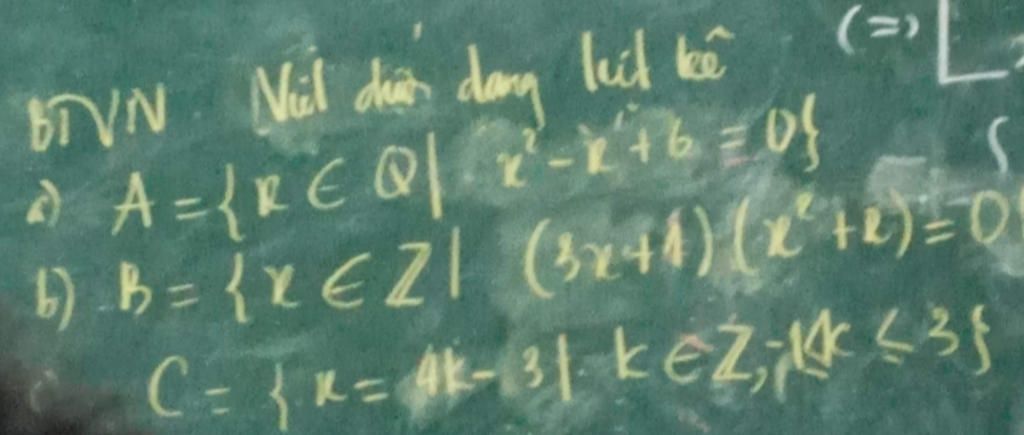 (=>
BTVN Viết dưới dạng liệt kê
a) A = {x ∈ Q | x² - x + 6 = 0}
b) B = {x ∈ Z | (3x+1)(x²+2) = 0
C = {x = 4k - 3 | k ∈ Z; k ≤ 3}